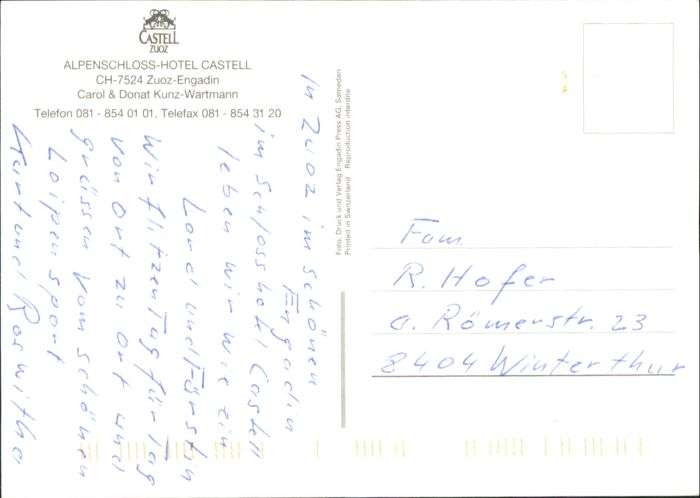 CASTELL
ZUOZ
ALPENSCHLOSS-HOTEL CASTELL
CH-7524 Zuoz-Engadin
Carol & Donat Kunz-Wartmann
Telefon 081 - 854 01 01, Telefax 081 - 854 31 20
In Zuoz im schönen
Engadin
im Schlosshotel Castell
leben wir wie ein
Lord und Fürsten
Wir flitzen Tag für Tag
von Ort zu Ort und
grüssen vom schönen
Loipensport
Kurt und Roswitha
Foto, Druck und Verlag Engadin Press AG, Samedan
Printed in Switzerland Reproduction interdite
Fam.
R. Hofer
a. Römerstr. 23
8404 Winterthur